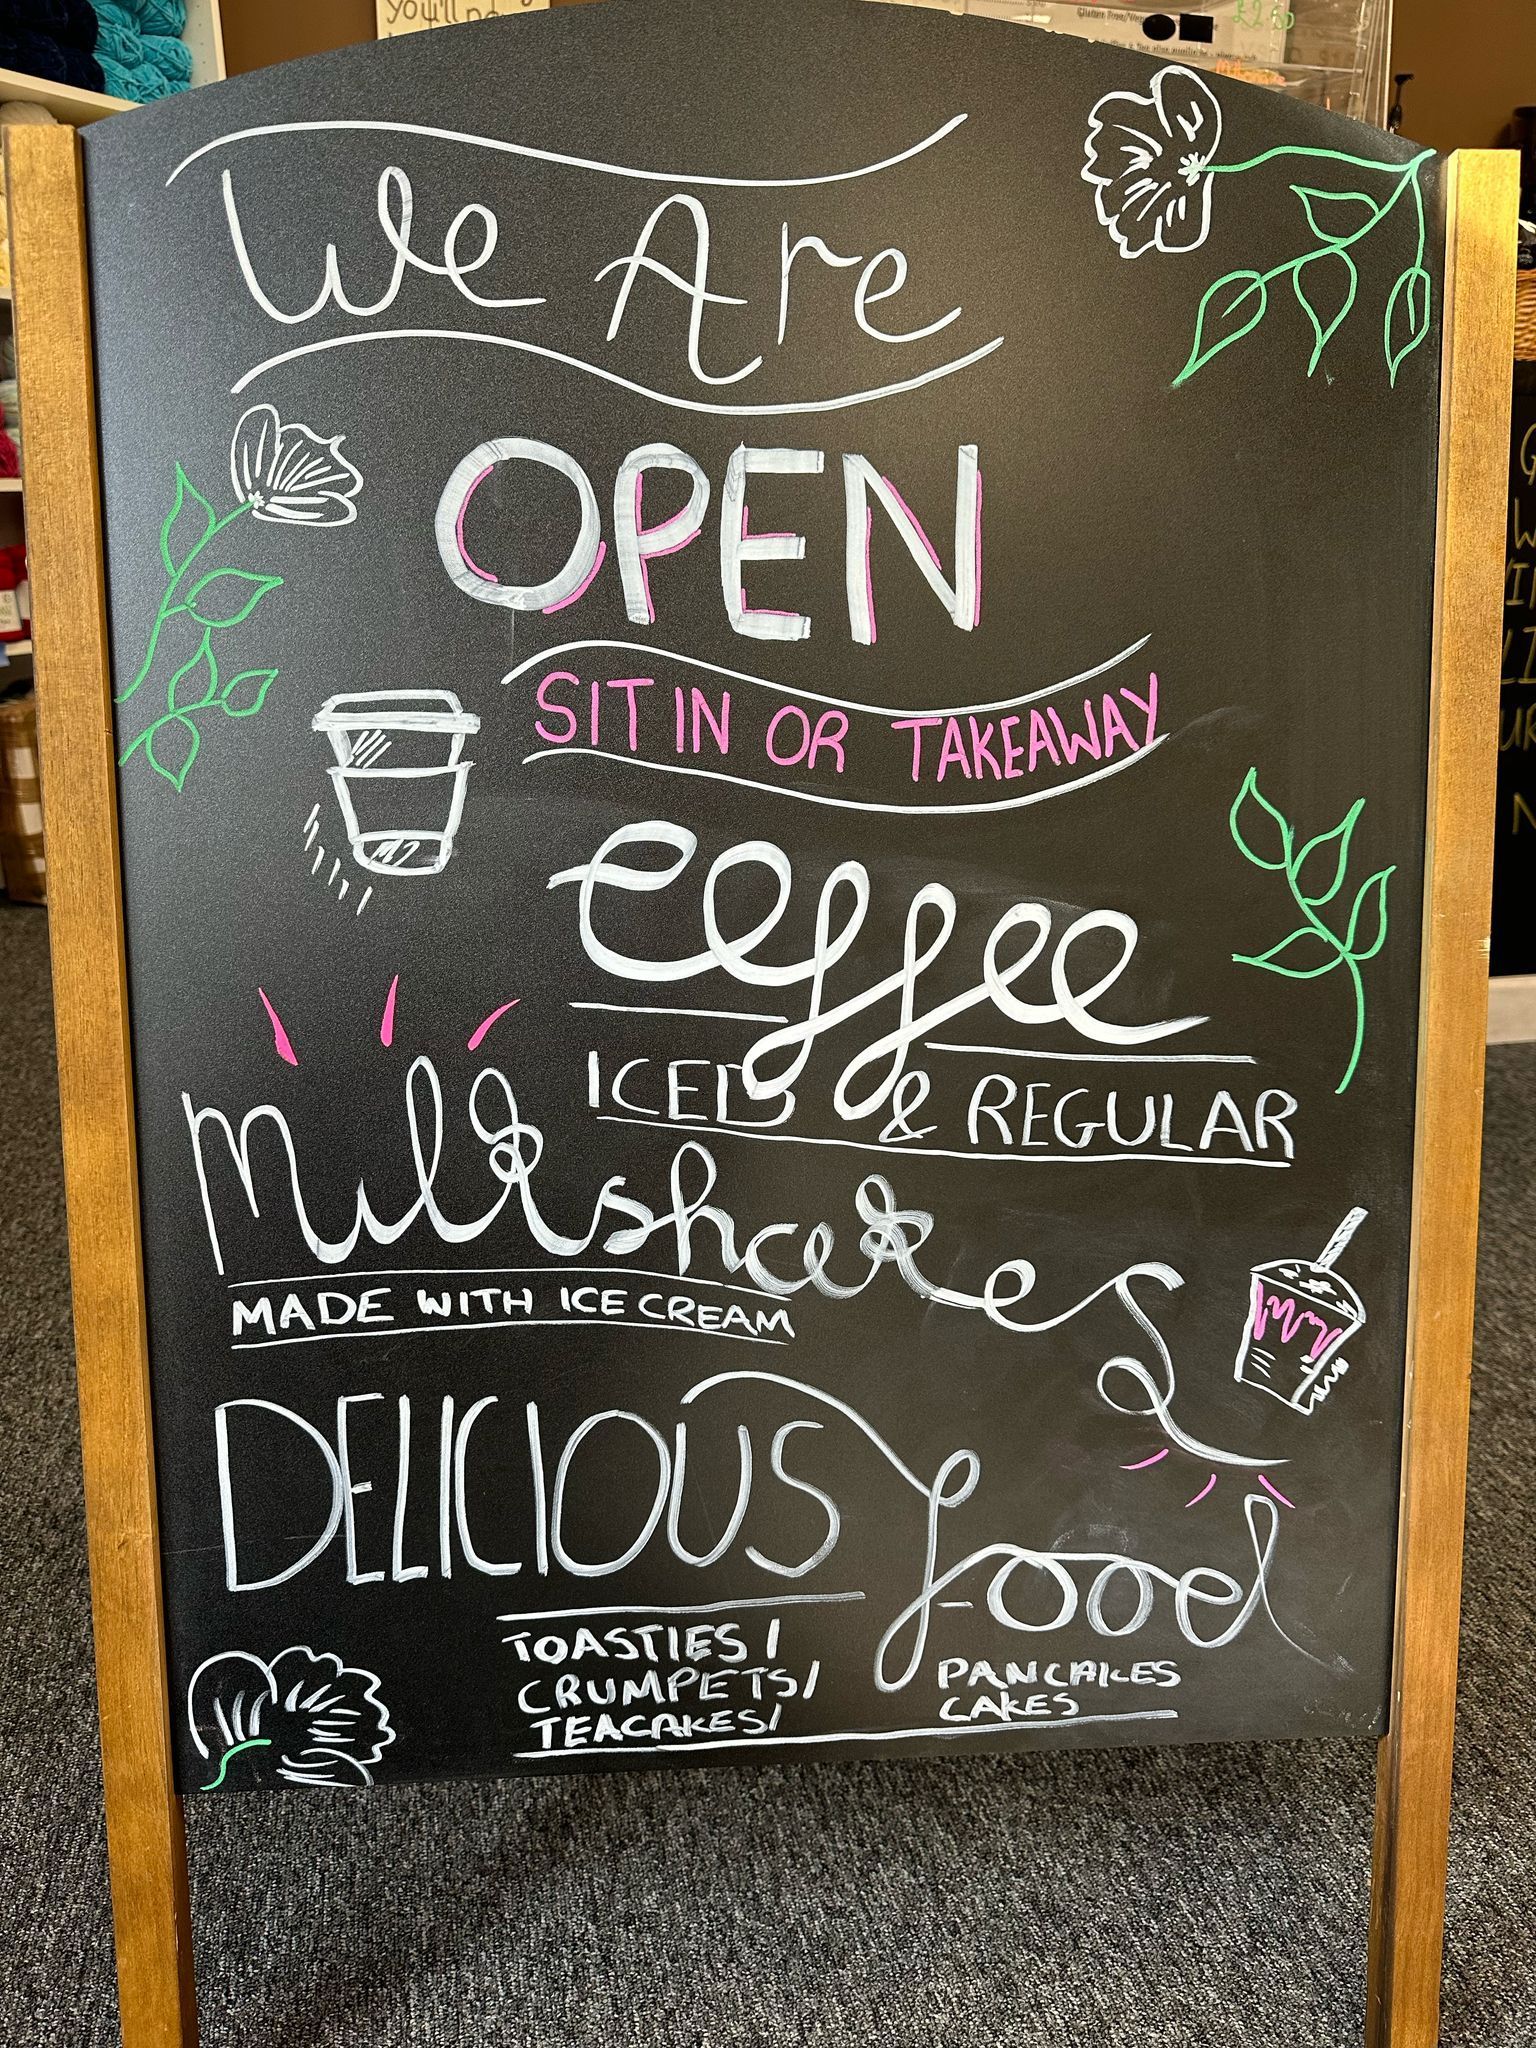 you'll ne
£2.50
We Are
OPEN
SIT IN OR TAKEAWAY
Coffee
ICED & REGULAR
Milkshakes
MADE WITH ICE CREAM
DELICIOUS food
TOASTIES /
CRUMPETS / PANCAKES
TEACAKES / CAKES